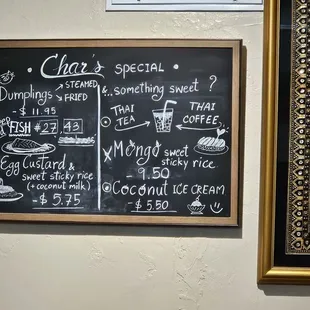 Char's SPECIAL
Dumplings
STEAMED
FRIED
- $ 11.95
FISH #27 43
Egg Custard &
sweet sticky rice
(+coconut milk)
- $ 5.75
&..something sweet ?
THAI TEA
THAI COFFEE
Mango sweet
sticky rice
9.50
Coconut ICE CREAM
- $ 5.50